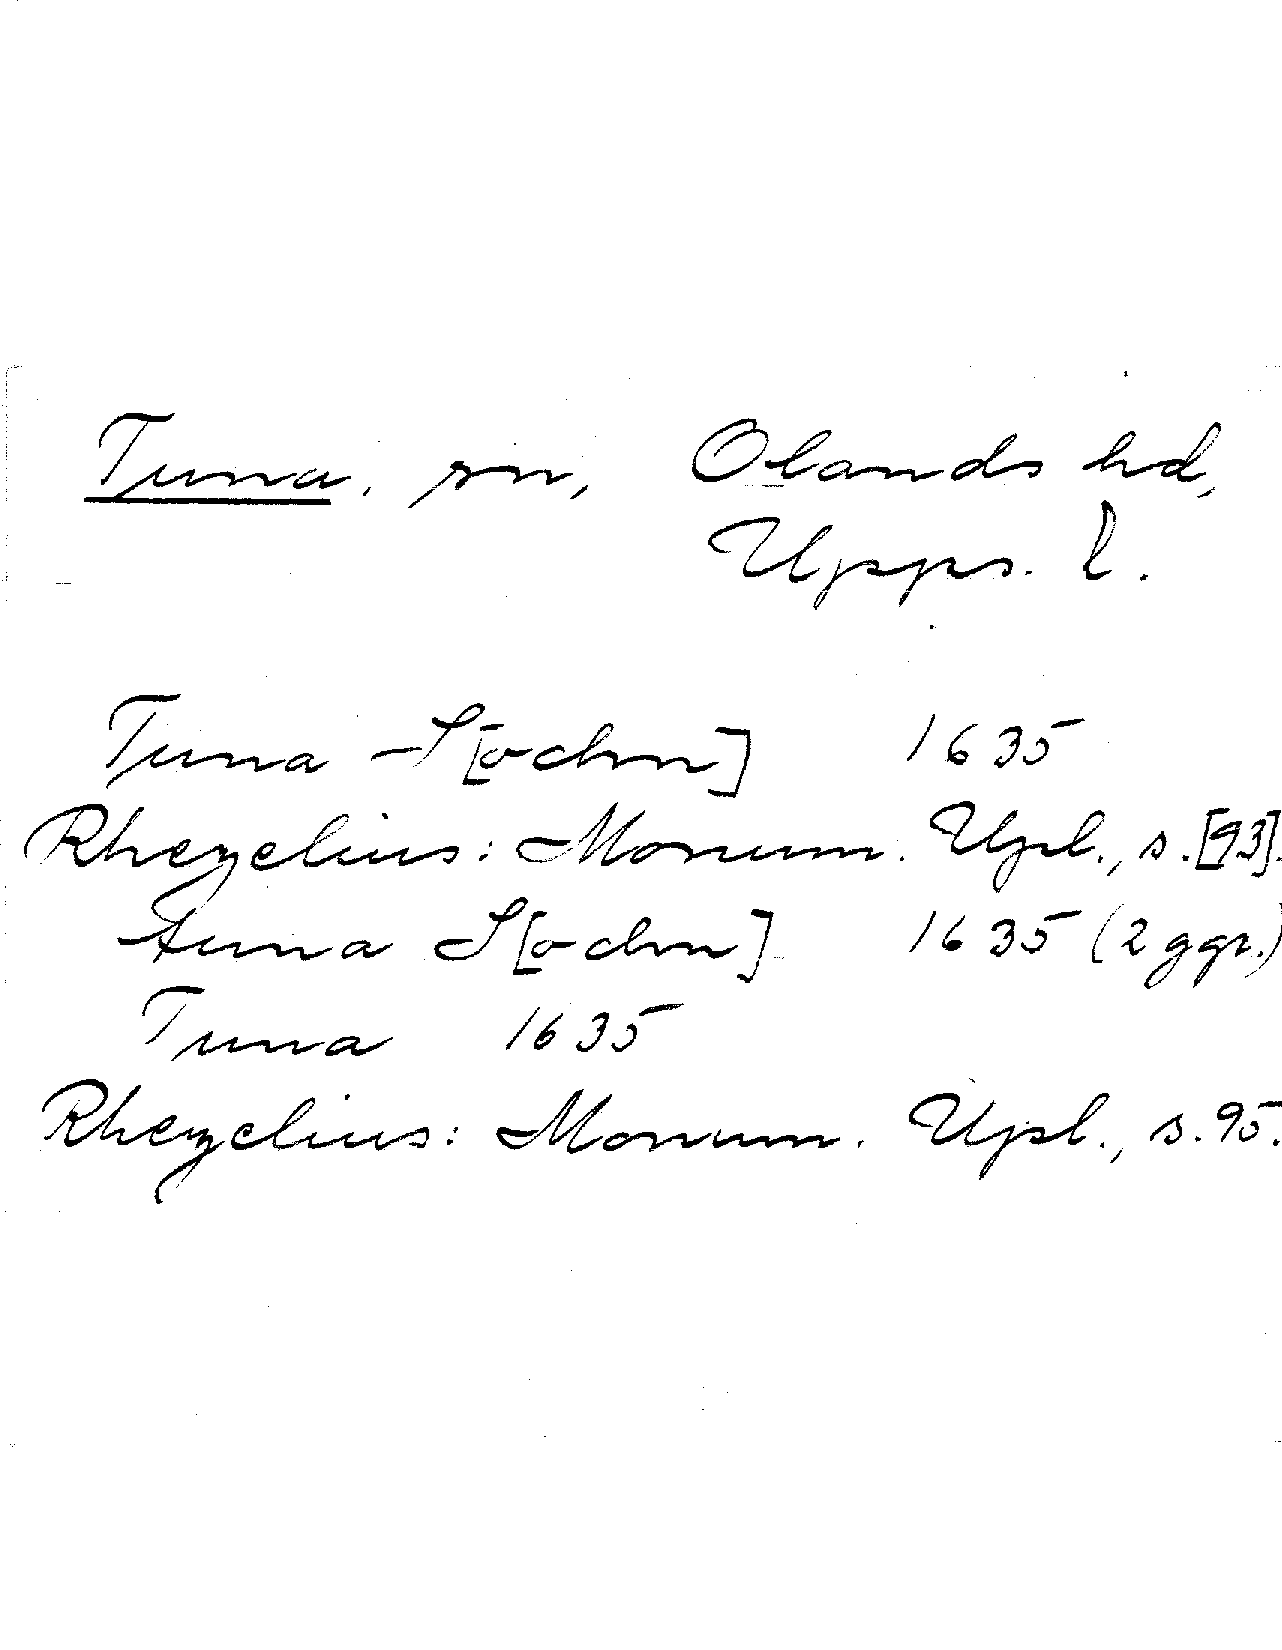 Tuna, sn, Olands hd,
Upps. l.
Tuna S[ochn] 1635
Rhezelius: Monum. Upl., s. [93].
tuna S[ochn] 1635 (2 ggr.)
Tuna 1635
Rhezelius: Monum. Upl., s. 95.